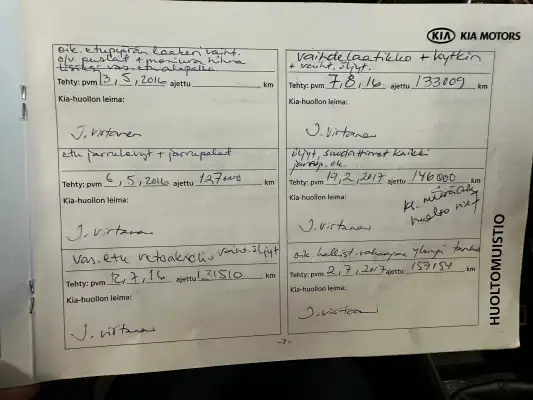 KIA KIA MOTORS
oik. etupyörän laakeri vaiht.
o/v puslat + moniura hihna
vas. etualapallo
Tehty: pvm 13,5,2016 ajettu km
Kia-huollon leima:
J. Virtanen
etu jarrulevyt + jarrupalat
Tehty: pvm 6,5,2016 ajettu 127000 km
Kia-huollon leima:
J. Virtanen
vas. etu vetoakseli + vaihd. öljyt
Tehty: pvm 2,7,16 ajettu 131510 km
Kia-huollon leima:
J. Virtanen
vaihdelaatikko + kytkin
+ vaiht. öljyt.
Tehty: pvm 7,8,16 ajettu 133009 km
Kia-huollon leima:
J. Virtanen
öljyt, suodattimet kaikki
jarrup.
Tehty: pvm 19,2,2017 ajettu 146000 km
Kia-huollon leima:
huollot
J. Virtanen
oik. kallist. vakaajan ylempi tanko
Tehty: pvm 2,7,2017 ajettu 157154 km
Kia-huollon leima:
J. Virtanen
HUOLTOMUISTIO
-7-